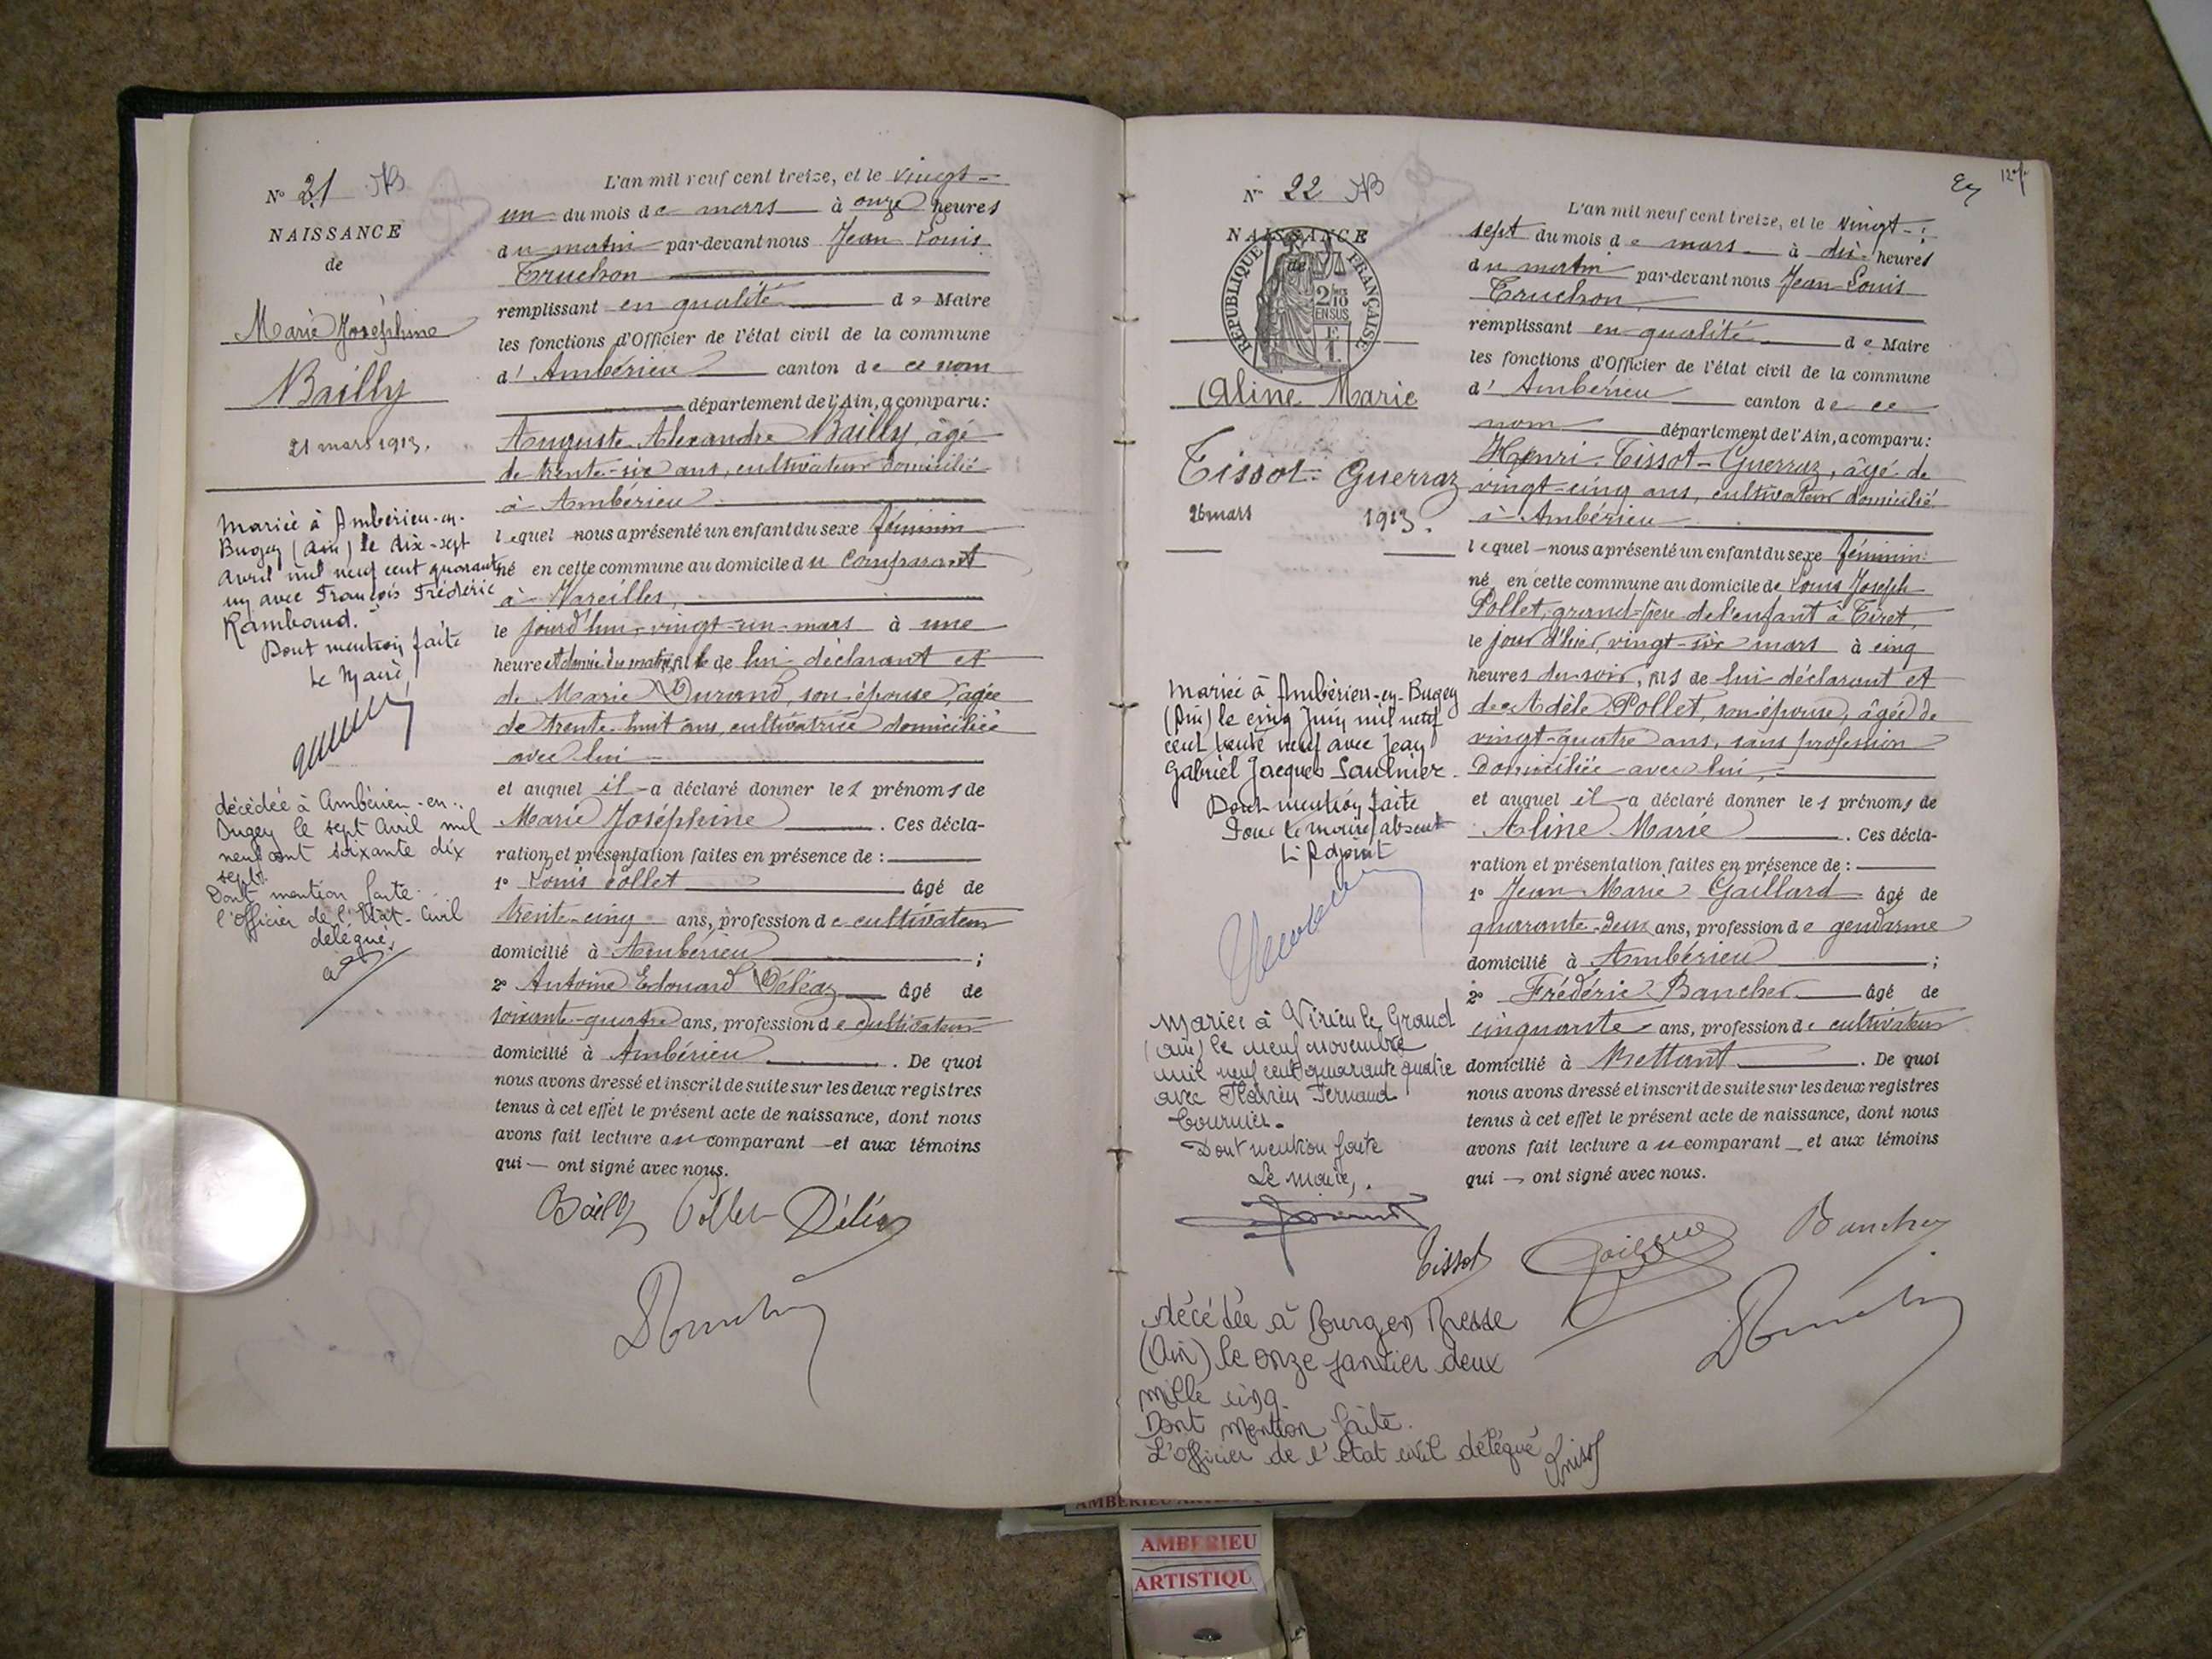 N° 21 NB
NAISSANCE
de
Marie Joséphine
Bailly
21 mars 1913.
Mariée à Ambérieu-en-
Bugey (Ain) le dix-sept
avril mil neuf cent quarante
un avec François Frédéric
Rambaud.
Dont mention faite
Le Maire,
décédée à Ambérieu-en-
Bugey le sept avril mil
neuf cent soixante dix
sept.
Dont mention faite.
l'Officier de l'Etat-Civil
délégué,
L'an mil neuf cent treize, et le vingt-
un du mois de mars à onze heures
du matin par-devant nous Jean Louis
Truchon
remplissant en qualité de Maire
les fonctions d'Officier de l'état civil de la commune
d'Ambérieu canton de ce nom
département de l'Ain, a comparu :
Auguste Alexandre Bailly, âgé
de trente-six ans, cultivateur domicilié
à Ambérieu
lequel nous a présenté un enfant du sexe féminin
né en cette commune au domicile du comparant
à Vareilles,
le jourd'hui vingt-un mars à une
heure et demie du matin, fils de lui déclarant et
de Marie Durand, son épouse, âgée
de trente-huit ans, cultivatrice domiciliée
avec lui
et auquel il a déclaré donner les prénoms de
Marie Joséphine . Ces décla-
ration et présentation faites en présence de :
1° Louis Pollet âgé de
trente-cinq ans, profession de cultivateur
domicilié à Ambérieu ;
2° Antoine Edouard Déléaz âgé de
soixante-quatre ans, profession de cultivateur
domicilié à Ambérieu . De quoi
nous avons dressé et inscrit de suite sur les deux registres
tenus à cet effet le présent acte de naissance, dont nous
avons fait lecture au comparant et aux témoins
qui ont signé avec nous.
Bailly Pollet Déléaz
Truchon
N° 22 NB
NAISSANCE
de
RÉPUBLIQUE FRANÇAISE
2/10
EN SUS
Aline Marie
Tissot-Guerraz
26 mars 1913.
Mariée à Ambérieu-en-Bugey
(Ain) le cinq Juin mil neuf
cent trente neuf avec Jean
Gabriel Jacques Saulnier.
Dont mention faite
Pour le maire absent
L'Adjoint
Mariée à Virieu le Grand
(Ain) le neuf novembre
mil neuf cent quarante quatre
avec Flavien Fernand
Tournier.
Dont mention faite
Le maire,
décédée à Bourg en Bresse
(Ain) le onze janvier deux
mille cinq.
Dont mention faite.
L'Officier de l'état civil délégué
12e f.
L'an mil neuf cent treize, et le vingt-
sept du mois de mars à dix heures
du matin par-devant nous Jean Louis
Truchon
remplissant en qualité de Maire
les fonctions d'Officier de l'état civil de la commune
d'Ambérieu canton de ce
nom département de l'Ain, a comparu :
Henri Tissot-Guerraz, âgé de
vingt-cinq ans, cultivateur domicilié
à Ambérieu
lequel nous a présenté un enfant du sexe féminin
né en cette commune au domicile de Louis Joseph
Pollet, grand-père de l'enfant à Tiret,
le jour d'hier, vingt-six mars à cinq
heures du soir, fils de lui déclarant et
de Adèle Pollet, son épouse, âgée de
vingt-quatre ans, sans profession
domiciliée avec lui,
et auquel il a déclaré donner les prénoms de
Aline Marie . Ces décla-
ration et présentation faites en présence de :
1° Jean Marie Gaillard âgé de
quarante-deux ans, profession de gendarme
domicilié à Ambérieu ;
2° Frédéric Bancher âgé de
cinquante ans, profession de cultivateur
domicilié à Bettant . De quoi
nous avons dressé et inscrit de suite sur les deux registres
tenus à cet effet le présent acte de naissance, dont nous
avons fait lecture au comparant et aux témoins
qui ont signé avec nous.
Tissot Gaillard Bancher
Truchon
AMBERIEU
ARTISTIQU